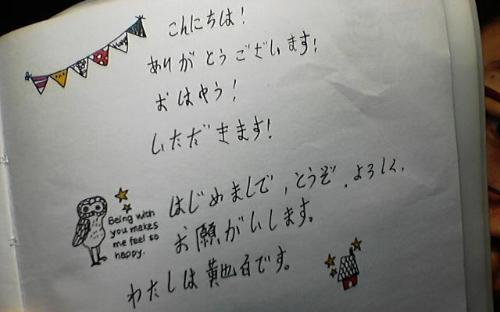 こんにちは！
ありがとうございます！
おはよう！
いただきます！
はじめましで，とうぞ．よろしく．
お願がいします。
Being with
you makes
me feel so
happy.
わたしは黄也百です。